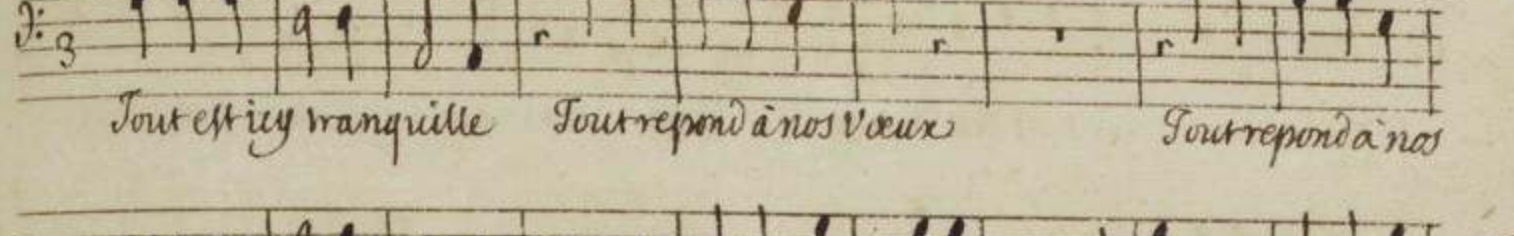 3
Tout est icy tranquille Tout repond à nos vœux Tout repond à nos